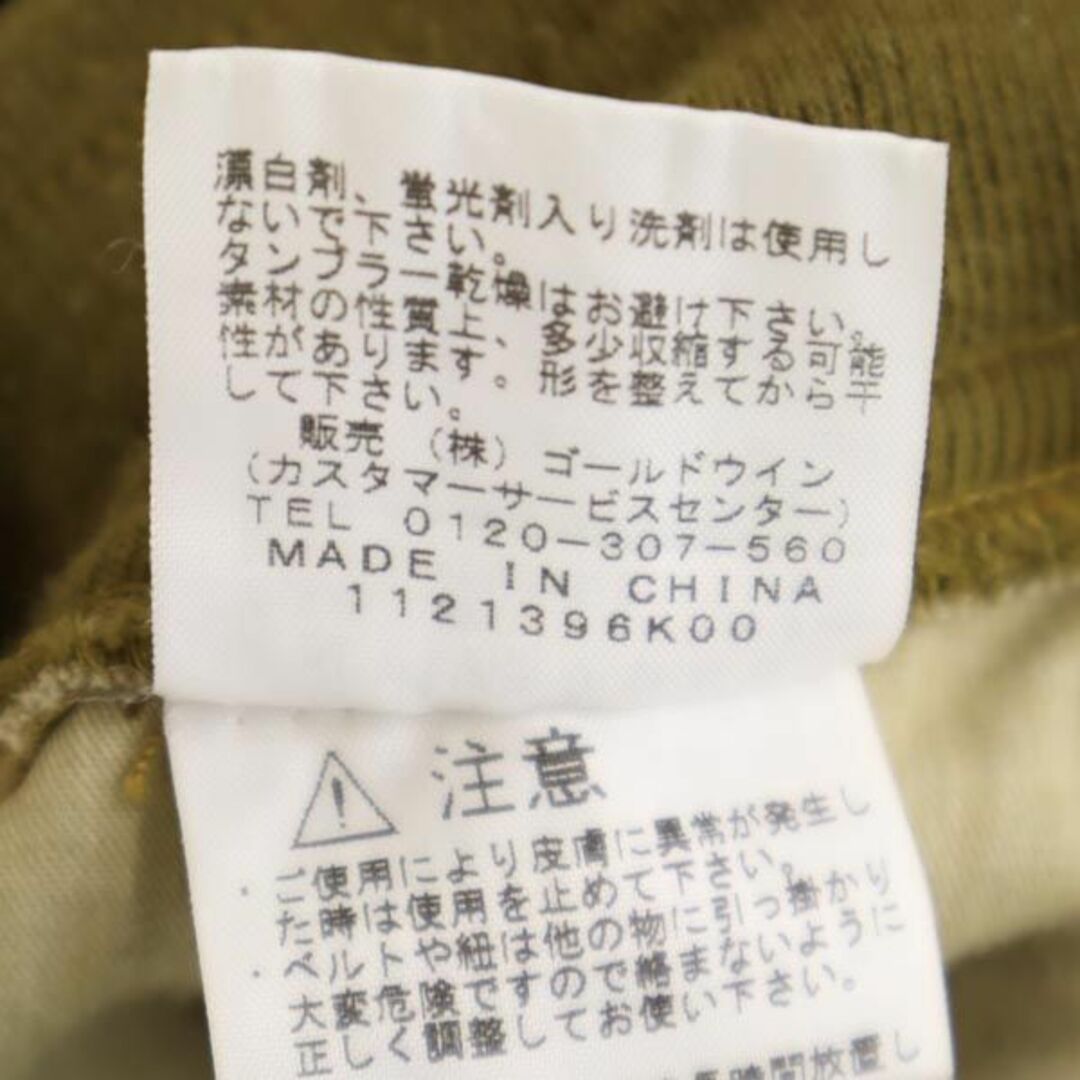 漂白剤、蛍光剤入り洗剤は使用し
ないで下さい。
タンブラー乾燥はお避け下さい。
素材の性質上、多少収縮する可能
性があります。形を整えてから干
して下さい。
販売 (株) ゴールドウイン
(カスタマーサービスセンター)
TEL 0120-307-560
MADE IN CHINA
1121396K00
注意
・ご使用により皮膚に異常が発生し
た時は使用を止めて下さい。
・ベルトや紐は他の物に引っ掛かり
大変危険ですので絡まないように
正しく調整してお使い下さい。
長時間放置し